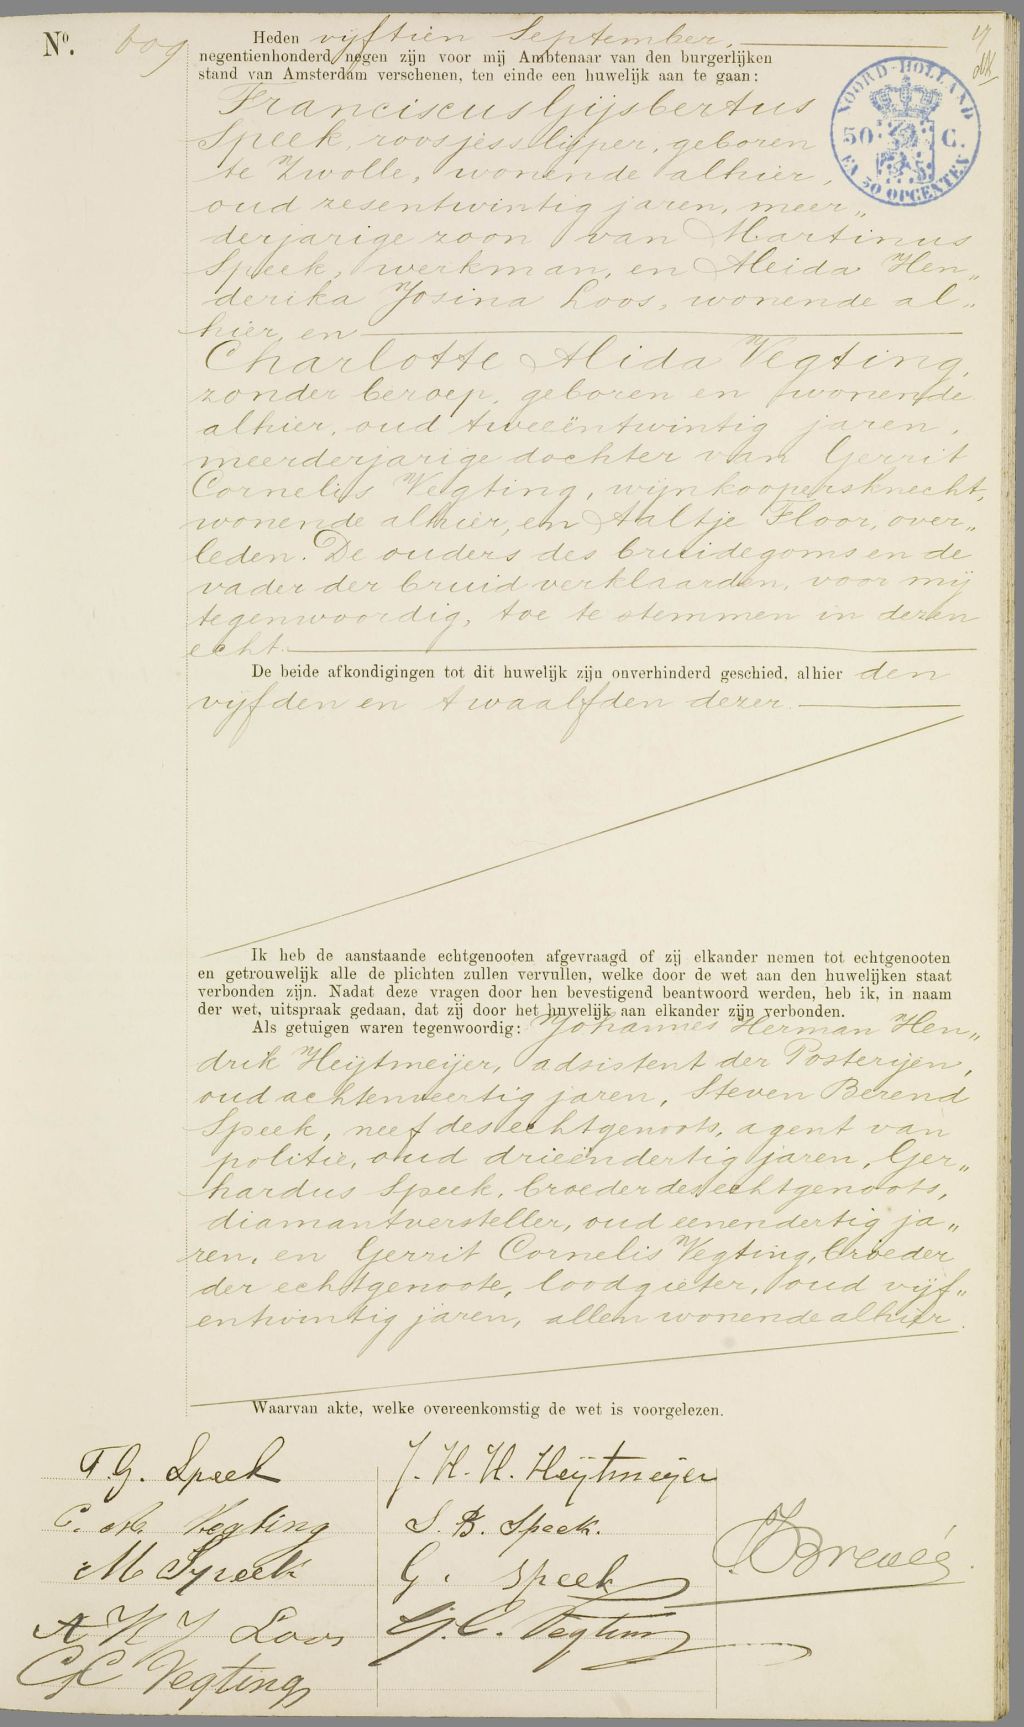 Nº. 609
Heden vijftien September,
negentienhonderd negen zijn voor mij Ambtenaar van den burgerlijken
stand van Amsterdam verschenen, ten einde een huwelijk aan te gaan:
VOORD-HOLLAND
50 C.
EN 50 OPCENTEN
Franciscus Gijsbertus
Speek, roosjesslijper, geboren
te Zwolle, wonende alhier,
oud zesentwintig jaren, meer„
derjarige zoon van Martinus
Speek, werkman, en Aleida Hen„
derika Josina Loos, wonende al„
hier, en
Charlotte Alida Vegting,
zonder beroep, geboren en wonende
alhier, oud tweeëntwintig jaren,
meerderjarige dochter van Gerrit
Cornelis Vegting, wijnkoopersknecht,
wonende alhier, en Aaltje Floor, over„
leden. De ouders des bruidegoms en de
vader der bruid verklaarden, voor mij
tegenwoordig, toe te stemmen in dezen
echt.
De beide afkondigingen tot dit huwelijk zijn onverhinderd geschied, alhier den
vijfden en twaalfden dezer.
Ik heb de aanstaande echtgenooten afgevraagd of zij elkander nemen tot echtgenooten
en getrouwelijk alle de plichten zullen vervullen, welke door de wet aan den huwelijken staat
verbonden zijn. Nadat deze vragen door hen bevestigend beantwoord werden, heb ik, in naam
der wet, uitspraak gedaan, dat zij door het huwelijk aan elkander zijn verbonden.
Als getuigen waren tegenwoordig: Johannes Herman Hen„
drik Heijtmeijer, adsistent der Posterijen,
oud achtenveertig jaren, Steven Berend
Speek, neef des echtgenoots, agent van
politie, oud drieëndertig jaren, Ger„
hardus Speek, broeder des echtgenoots,
diamantversteller, oud eenendertig ja„
ren, en Gerrit Cornelis Vegting, broeder
der echtgenoote, loodgieter, oud vijf„
entwintig jaren, allen wonende alhier.
Waarvan akte, welke overeenkomstig de wet is voorgelezen.
F. G. Speek
J. H. H. Heijtmeijer
C. A. Vegting
S. B. Speek.
M Speek
G. Speek
A H J Loos
G. C. Vegting
G C Vegting